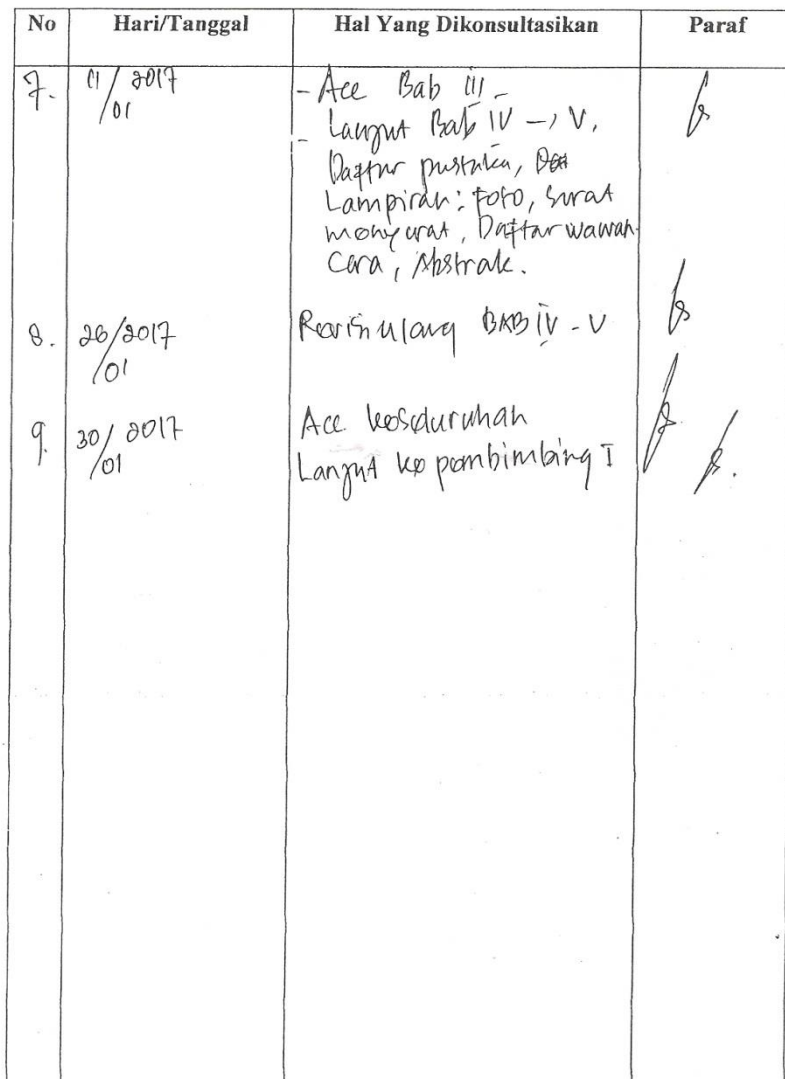 No Hari/Tanggal Hal Yang Dikonsultasikan Paraf
7. 11/01 2017 - Acc Bab III -
- Lanjut Bab IV -> V,
Daftar pustaka,
Lampiran: Foto, surat
menyurat, Daftar wawan
cara, Abstrak.
8. 26/01 2017 Revisi ulang BAB IV - V
9. 30/01 2017 Acc keseluruhan
Lanjut ke pembimbing I